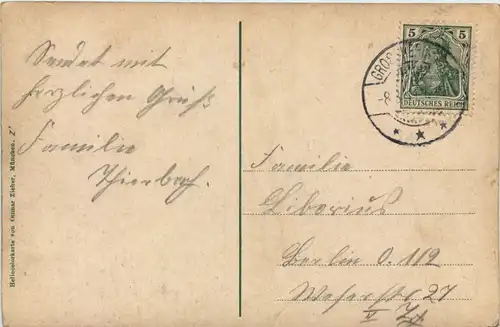 Sendet mit
herzlichen Gruß
Familie
Thierbach.
Heliocolorkarte von Ottmar Zieher, München. Z'
5 5
DEUTSCHES REICH
GROS
-8.
Familie
Liborius
Berlin O. 112
Weserstr. 27